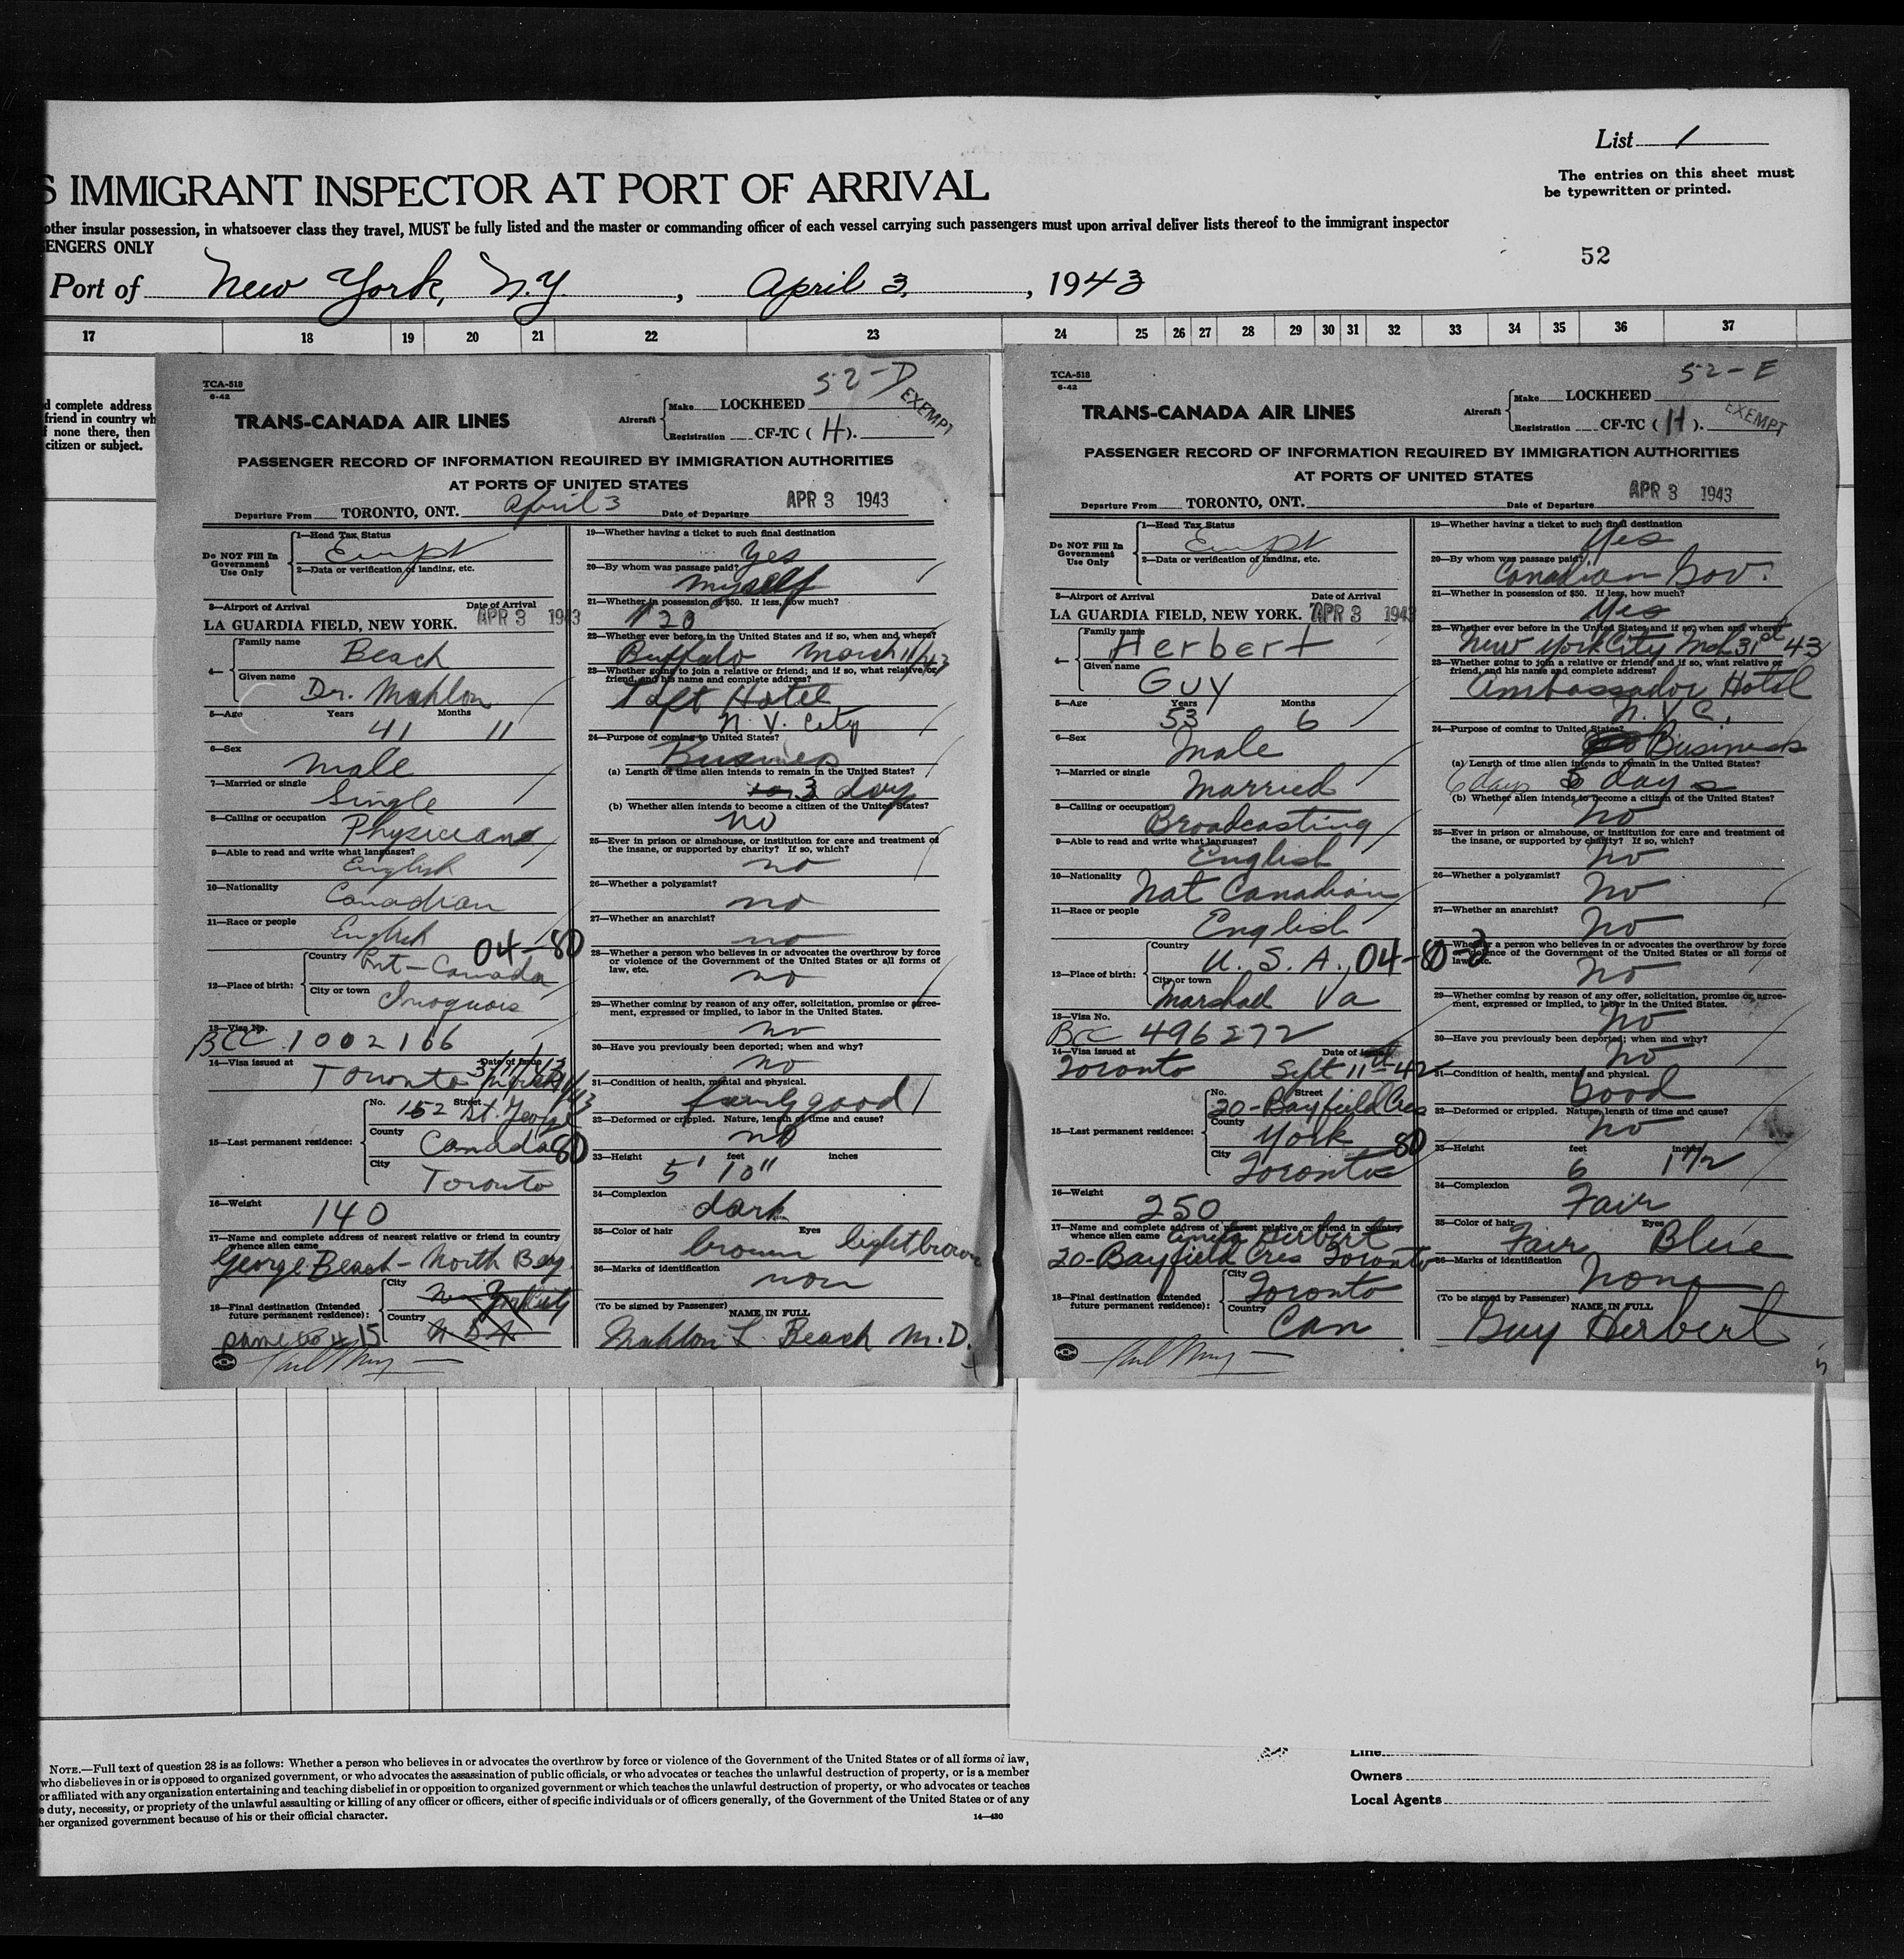 List 1
The entries on this sheet must
be typewritten or printed.
S IMMIGRANT INSPECTOR AT PORT OF ARRIVAL
other insular possession, in whatsoever class they travel, MUST be fully listed and the master or commanding officer of each vessel carrying such passengers must upon arrival deliver lists thereof to the immigrant inspector
ENGERS ONLY
52
Port of New York, N.Y. , April 3, , 1943
17 18 19 20 21 22 23 24 25 26 27 28 29 30 31 32 33 34 35 36 37
d complete address
friend in country wh
f none there, then
citizen or subject.
52-D
TCA-518
6-42
EXEMPT
TRANS-CANADA AIR LINES
Aircraft Make LOCKHEED
Registration CF-TC ( H ).
PASSENGER RECORD OF INFORMATION REQUIRED BY IMMIGRATION AUTHORITIES
AT PORTS OF UNITED STATES
Departure From TORONTO, ONT. April 3 Date of Departure APR 3 1943
Do NOT Fill In
Government
Use Only
1—Head Tax Status
2—Data or verification of landing, etc.
3—Airport of Arrival Date of Arrival
LA GUARDIA FIELD, NEW YORK. APR 3 1943
4— Family name Beach
Given name Dr. Mahlon
5—Age Years 41 Months 11
6—Sex Male
7—Married or single Single
8—Calling or occupation Physician
9—Able to read and write what languages? English
10—Nationality Canadian
11—Race or people English
04-80
12—Place of birth: Country Ont-Canada
City or town Iroquois
13—Visa No. BCC 1002166
14—Visa issued at Toronto Date of Issue
15—Last permanent residence: No. 152 Street St. George
County Canada 80
City Toronto
16—Weight 140
17—Name and complete address of nearest relative or friend in country
whence alien came
George Beach - North Bay
18—Final destination (Intended
future permanent residence): City New York City
Country U S A
same as # 15
19—Whether having a ticket to such final destination
Yes
20—By whom was passage paid?
myself
21—Whether in possession of $50. If less, how much?
$20
22—Whether ever before in the United States and if so, when and where?
Buffalo March 11/43
23—Whether going to join a relative or friend; and if so, what relative or
friend, and his name and complete address?
Taft Hotel
N. Y. City
24—Purpose of coming to United States?
Business
(a) Length of time alien intends to remain in the United States?
3 day
(b) Whether alien intends to become a citizen of the United States?
no
25—Ever in prison or almshouse, or institution for care and treatment of
the insane, or supported by charity? If so, which?
no
26—Whether a polygamist?
no
27—Whether an anarchist?
no
28—Whether a person who believes in or advocates the overthrow by force
or violence of the Government of the United States or all forms of
law, etc.
no
29—Whether coming by reason of any offer, solicitation, promise or agree-
ment, expressed or implied, to labor in the United States.
no
30—Have you previously been deported; when and why?
no
31—Condition of health, mental and physical.
fairly good
32—Deformed or crippled. Nature, length of time and cause?
no
33—Height feet inches
5' 10"
34—Complexion
dark
35—Color of hair Eyes
brown light brown
36—Marks of identification
non
(To be signed by Passenger) NAME IN FULL
Mahlon L. Beach M.D.
52-E
TCA-518
6-42
EXEMPT
TRANS-CANADA AIR LINES
Aircraft Make LOCKHEED
Registration CF-TC ( H ).
PASSENGER RECORD OF INFORMATION REQUIRED BY IMMIGRATION AUTHORITIES
AT PORTS OF UNITED STATES
Departure From TORONTO, ONT. Date of Departure APR 3 1943
Do NOT Fill In
Government
Use Only
1—Head Tax Status
2—Data or verification of landing, etc.
3—Airport of Arrival Date of Arrival
LA GUARDIA FIELD, NEW YORK. APR 3 1943
4— Family name Herbert
Given name Guy
5—Age Years 53 Months 6
6—Sex Male
7—Married or single Married
8—Calling or occupation Broadcasting
9—Able to read and write what languages? English
10—Nationality Nat Canadian
11—Race or people English
12—Place of birth: Country U. S. A. 04-80-3
City or town Marshall Va
13—Visa No. BCC 496272
14—Visa issued at Toronto Date of Issue Sept 11th-42
15—Last permanent residence: No. Street 20-Bayfield Cres
County York 80
City Toronto
16—Weight 250
17—Name and complete address of nearest relative or friend in country
whence alien came Herbert
20-Bayfield Cres Toronto
18—Final destination (Intended
future permanent residence): City Toronto
Country Can
19—Whether having a ticket to such final destination
Yes
20—By whom was passage paid?
Canadian Gov.
21—Whether in possession of $50. If less, how much?
Yes
22—Whether ever before in the United States and if so, when and where?
New York City Mch 31st 43
23—Whether going to join a relative or friend; and if so, what relative or
friend, and his name and complete address?
Ambassador Hotel
N. Y. C.
24—Purpose of coming to United States?
Business
(a) Length of time alien intends to remain in the United States?
6 days 5 days
(b) Whether alien intends to become a citizen of the United States?
No
25—Ever in prison or almshouse, or institution for care and treatment of
the insane, or supported by charity? If so, which?
No
26—Whether a polygamist?
No
27—Whether an anarchist?
No
28—Whether a person who believes in or advocates the overthrow by force
or violence of the Government of the United States or all forms of
law, etc.
No
29—Whether coming by reason of any offer, solicitation, promise or agree-
ment, expressed or implied, to labor in the United States.
No
30—Have you previously been deported; when and why?
No
31—Condition of health, mental and physical.
Good
32—Deformed or crippled. Nature, length of time and cause?
No
33—Height feet inches
6 1 1/2
34—Complexion
Fair
35—Color of hair Eyes
Fair Blue
36—Marks of identification
None
(To be signed by Passenger) NAME IN FULL
Guy Herbert
NOTE.—Full text of question 28 is as follows: Whether a person who believes in or advocates the overthrow by force or violence of the Government of the United States or of all forms of law,
who disbelieves in or is opposed to organized government, or who advocates the assassination of public officials, or who advocates or teaches the unlawful destruction of property, or is a member
or affiliated with any organization entertaining and teaching disbelief in or opposition to organized government or which teaches the unlawful destruction of property, or who advocates or teaches
e duty, necessity, or propriety of the unlawful assaulting or killing of any officer or officers, either of specific individuals or of officers generally, of the Government of the United States or of any
her organized government because of his or their official character.
14—430
Line
Owners
Local Agents